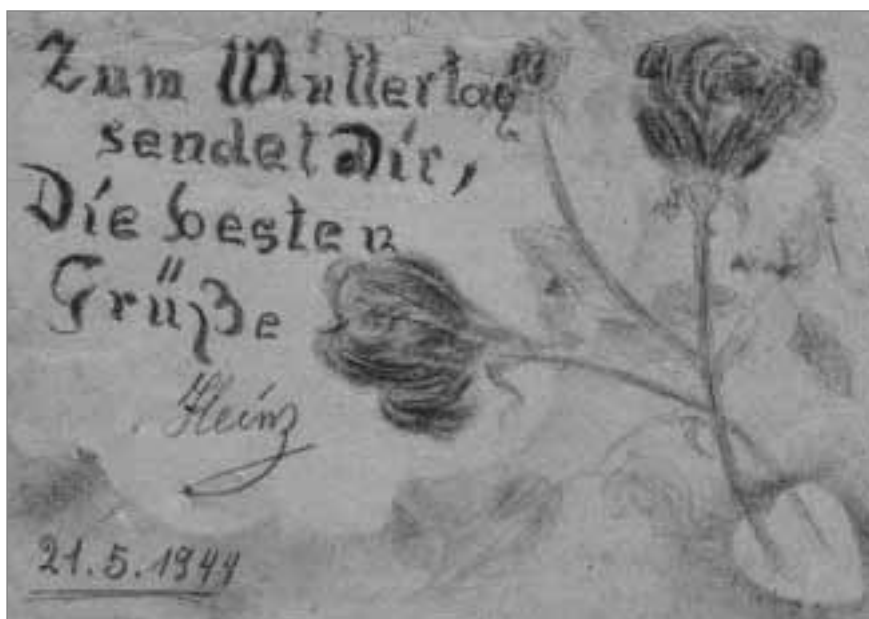 Zum Muttertag
sendet Dir,
Die besten
Grüße
Heinz
21.5.1944